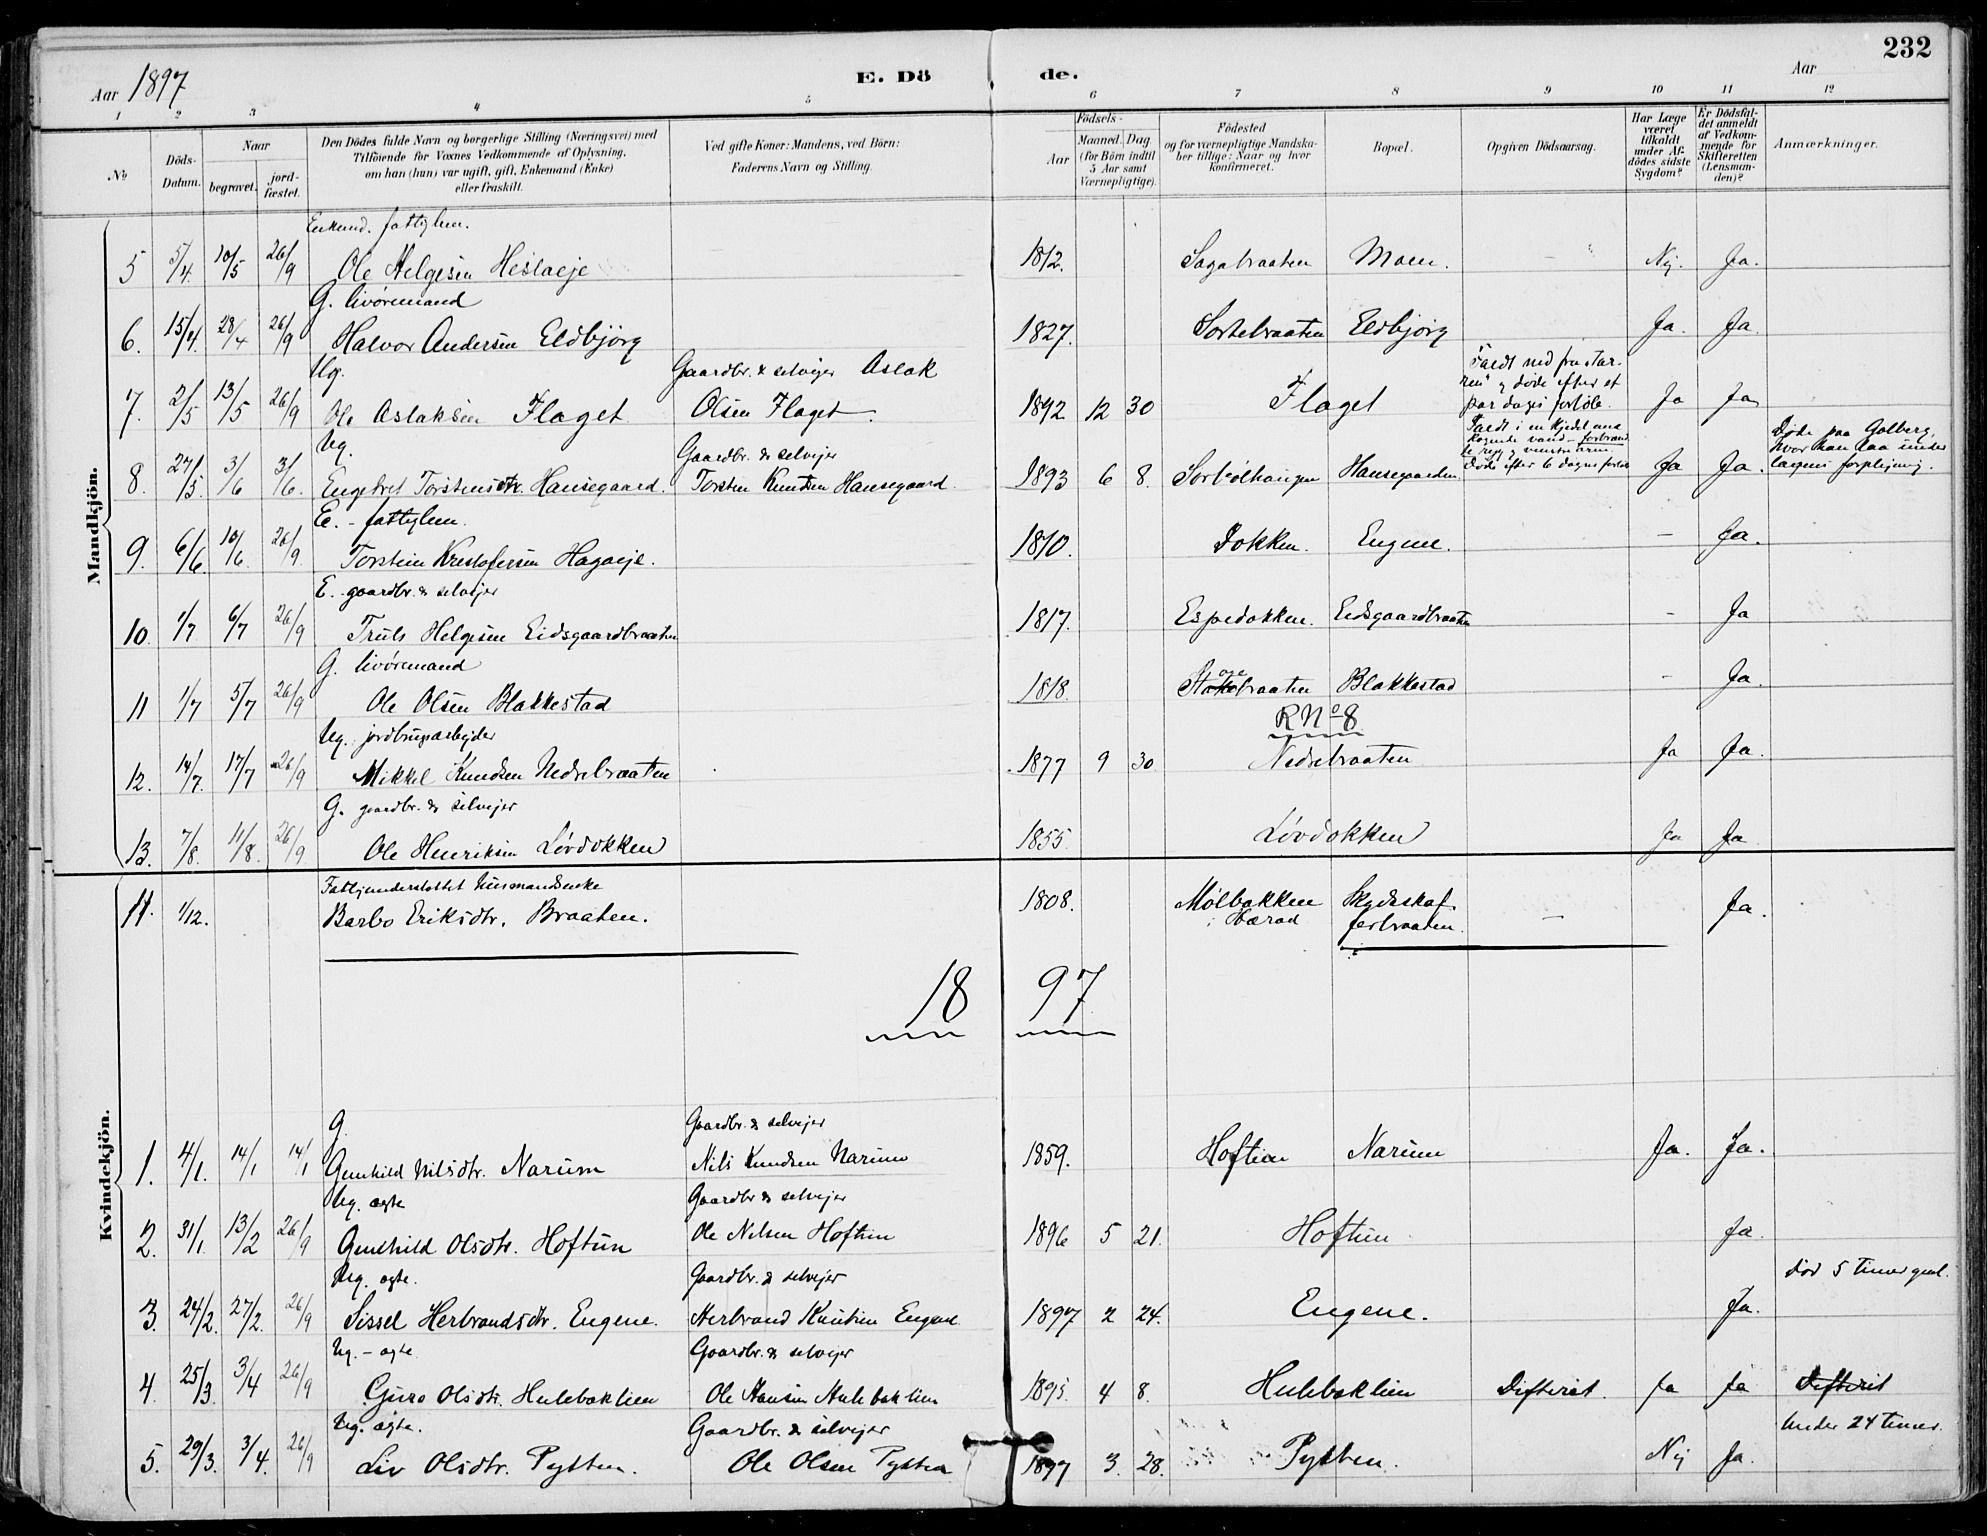 232
Aar 1897
E. Dö de.
Aar
1 2 3 4 5 6 7 8 9 10 11 12
No
Döds-Datum.
Naar
begravet.
jord-fæstet.
Den Dödes fulde Navn og borgerlige Stilling (Næringsvei) med
Tilföiende for Voxnes Vedkommende af Oplysning,
om han (hun) var ugift, gift, Enkemand (Enke)
eller fraskilt.
Ved gifte Koner: Mandens, ved Börn:
Faderens Navn og Stilling.
Födsels-
Aar
Maaned. Dag
(for Börn indtil
5 Aar samt
Værnepligtige).
Födested
og for værnepligtige Mandska-
ber tillige: Naar og hvor
konfirmeret.
Bopæl.
Opgiven Dödsaarsag.
Har Læge
været
tilkaldt
under Af-
dödes sidste
Sygdom?
Er Dödsfal-
det anmeldt
af Vedkom-
mende for
Skifteretten
(Lensman-
den)?
Anmærkninger.
Mandkjön.
Enkemd. fattiglem.
5 5/4. 10/5 26/9 Ole Helgesen Heslaeje 1812. Sagabraaten Moen. Nej. Ja.
G. livöremand
6. 15/4. 28/4 26/9 Halvor Andersen Eldbjörg 1827. Sortebraaten Eldbjörg Ja. Ja.
Ug. Gaardbr. & selvejer Aslak
7. 2/5 13/5 26/9 Ole Aslaksen Flaget Olsen Flaget. 1892 12 30 Flaget
Faldt ned fra
og döde efter et
par dages forlöb. Ja Ja
Ug. Gaardbr. & selvejer
8. 27/5. 3/6 3/6. Engebret Torstensdtr. Hansegaard. Torsten Knudsen Hansegaard. 1893 6 8. Hansegaarden
Faldt i en kjedel med
kogende vand – forbrændte
ryg og venstre arm.
Döde efter 6 dages forlöb Ja Ja.
Döde paa Golberg,
hvor han laa under
lægens forplejning.
E. - fattiglem.
9. 6/6. 10/6. 26/9. Torstein Kristofersen Hagaeje. 1810. Dokken. Engene. – Ja.
E. - gaardbr. & selvejer
10. 1/7. 6/7 26/9 Truls Helgesen Eidsgaardbraaten 1817. Espedokken. Eidsgaardbraaten – Ja
G. livöremand
11 1/7 5/7 26/9 Ole Olsen Blakkestad 1818. Blakkestad – Ja.
R No 8
Ug. jordbrugsarbejder
12. 14/7. 17/7 26/9 Mikkel Knudsen Nedrebraaten 1877 9 30. Nedrebraaten Ja Ja.
G. gaardbr. & selvejer
13. 7/8. 11/8. 26/9 Ole Henriksen Lövdokken 1855. Lövdokken Ja Ja
Fattigunderstöttet husmandsenke
11. 1/12. Barbo Eriksdtr. Braaten. 1808. Mölbakken
i Aurad Skydskaf-
ferbraaten. – Ja.
18 97
Kvindekjön.
G. Gaardbr. & selvejer
1. 4/1. 14/1 14/1 Gunhild Nilsdtr. Narum Nils Knudsen Narum 1859. Hoftun Narum Ja. Ja.
Ug. ægte Gaardbr. & selvejer
2. 31/1. 13/2 26/9 Gunhild Olsdtr. Hoftun Ole Nilsen Hoftun 1896 5 21. Hoftun Ja.
Ug. ægte. Gaardbr. & selvejer
3. 24/2. 27/2. 26/9 Sissel Herbrandsdtr. Engene. Herbrand Knutsen Engene 1897 2 24. Engene. Ja.
död 5 timer gml.
Ug. – ægte Gaardbr. & selvejer
4. 25/3 3/4 26/9 Guro Olsdtr. Hulebaklien Ole Hansen Hulebaklien 1895. 4 8. Hulebaklien Difterit. Ja Ja Difterit
Ug. ægte. Gaardbr. & selvejer
5. 29/3. 3/4. 26/9 Liv Olsdtr. Pytten. Ole Olsen Pytten 1897 3. 28. Pytten. Nej Ja.
Under 24 timer.